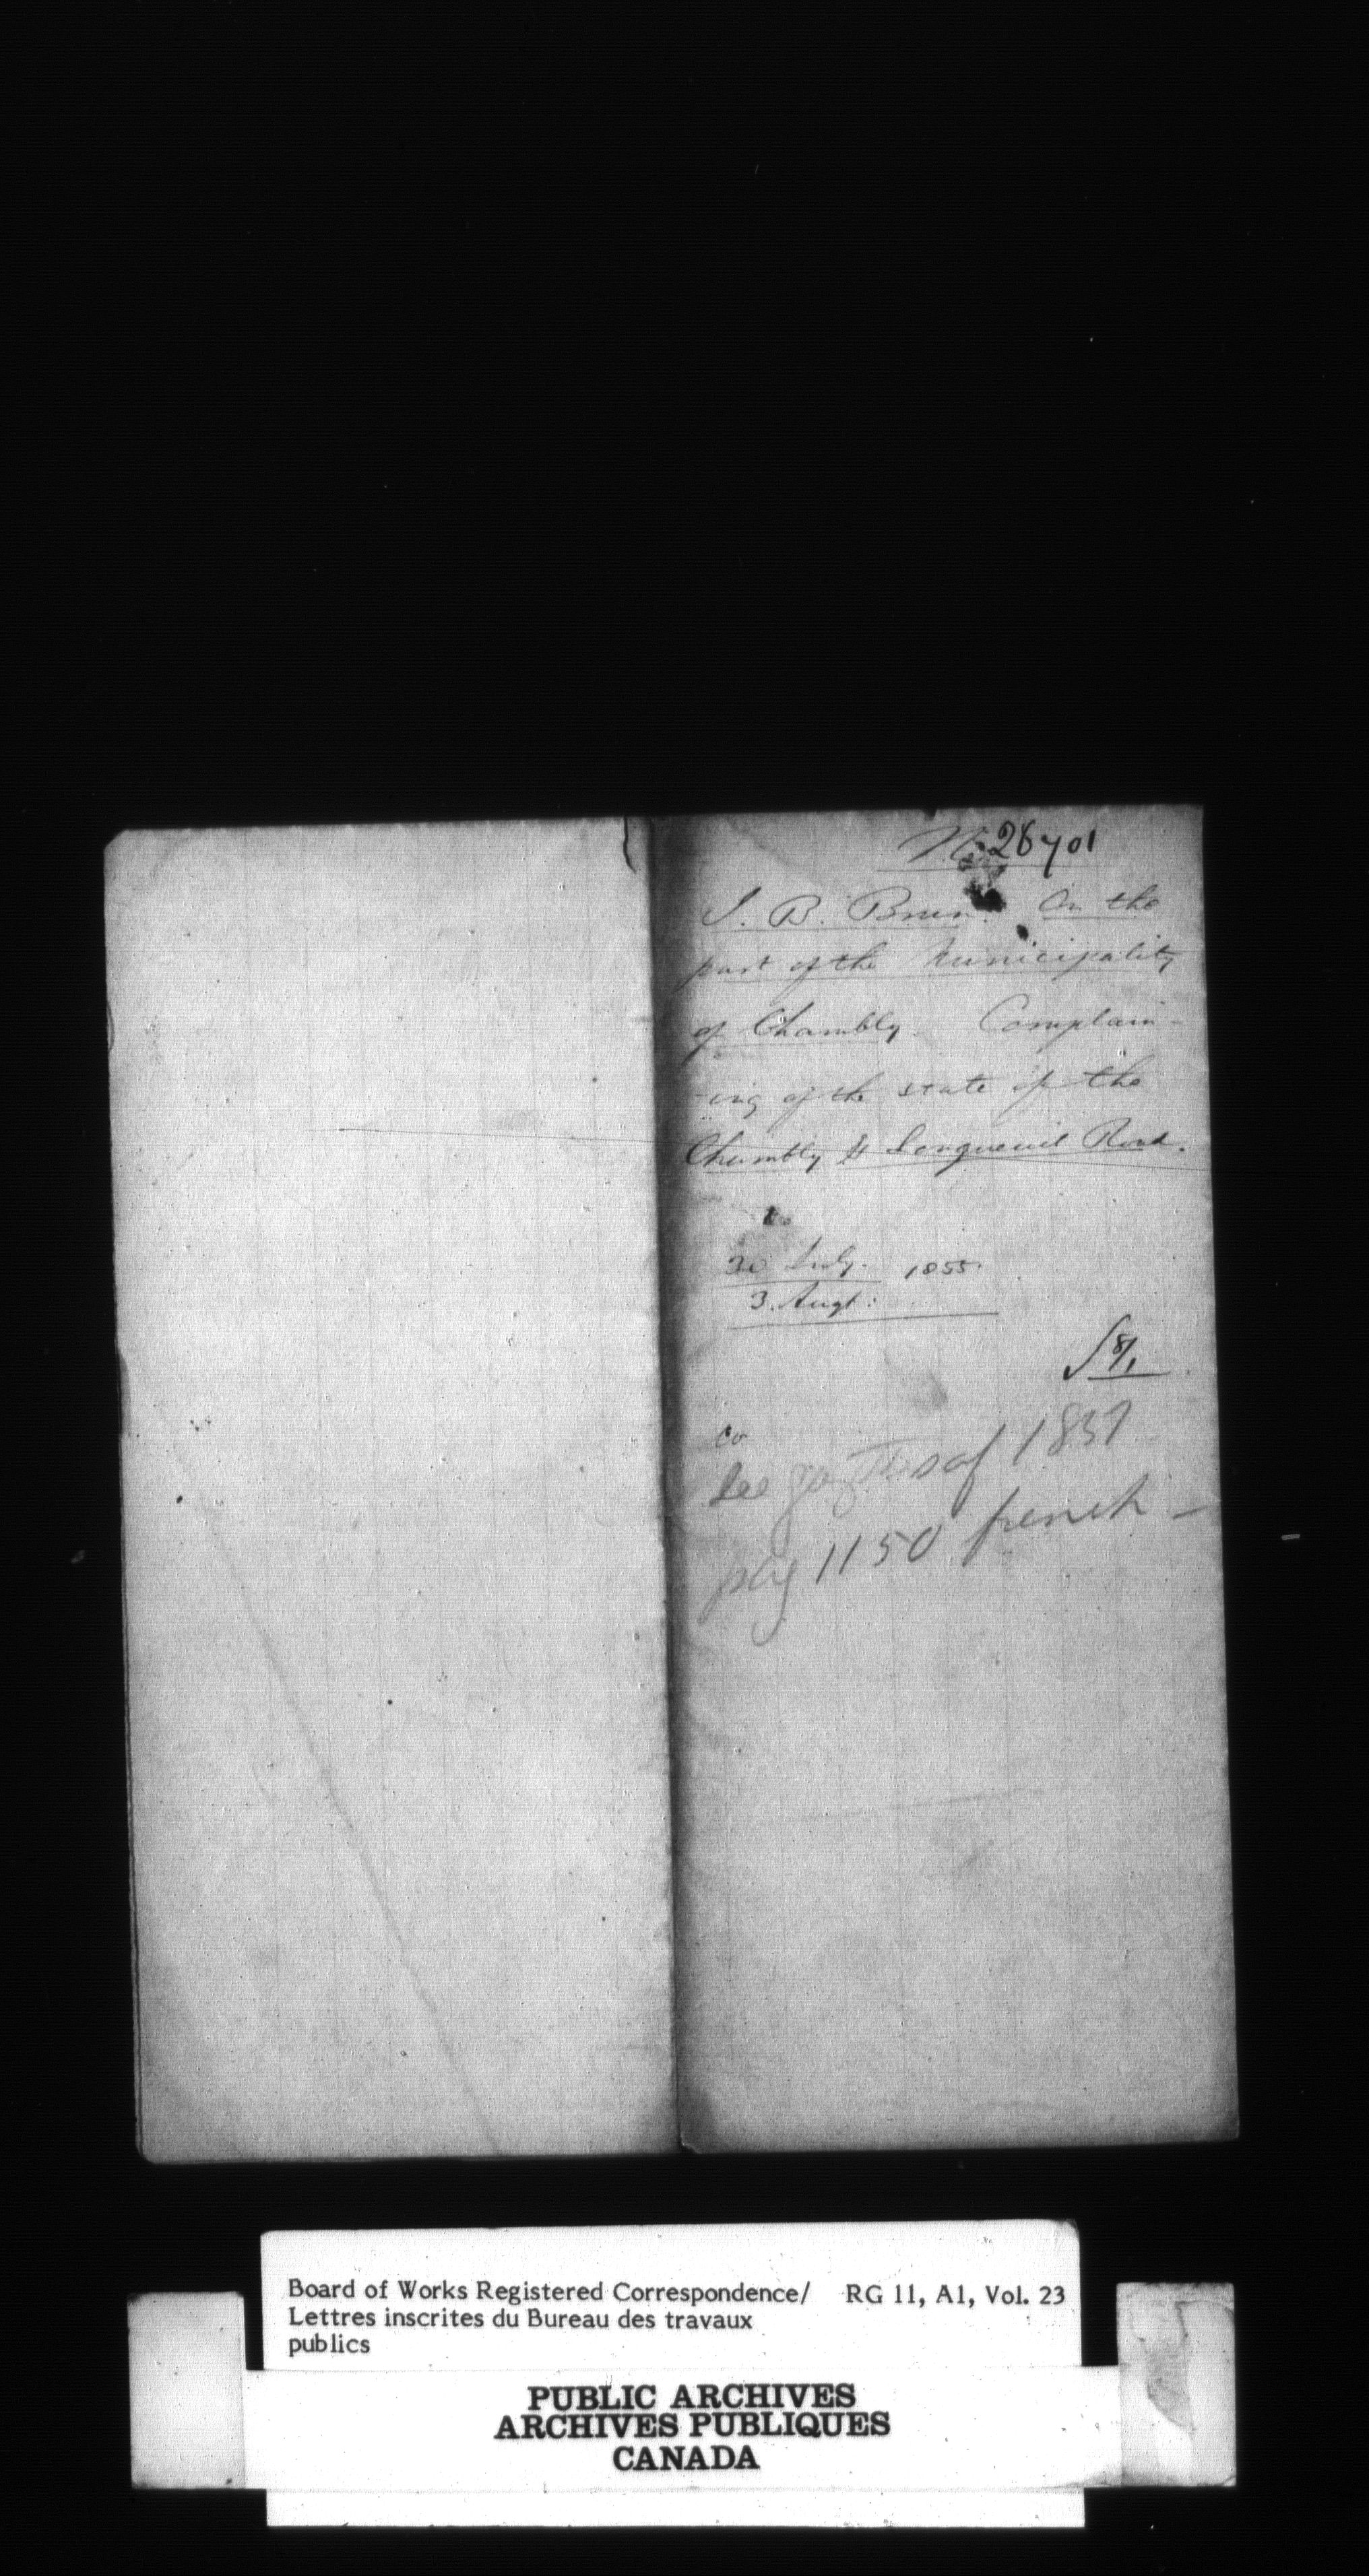 No. 26701
J. B. Brun. On the
part of the Municipality
of Chambly. Complain-
-ing of the state of the
Chambly & Longueuil Road.
30 July. 1855.
3. Augt:
8/1
See of 1857
pag 1150 french -
Board of Works Registered Correspondence/ RG 11, A1, Vol. 23
Lettres inscrites du Bureau des travaux
publics
PUBLIC ARCHIVES
ARCHIVES PUBLIQUES
CANADA